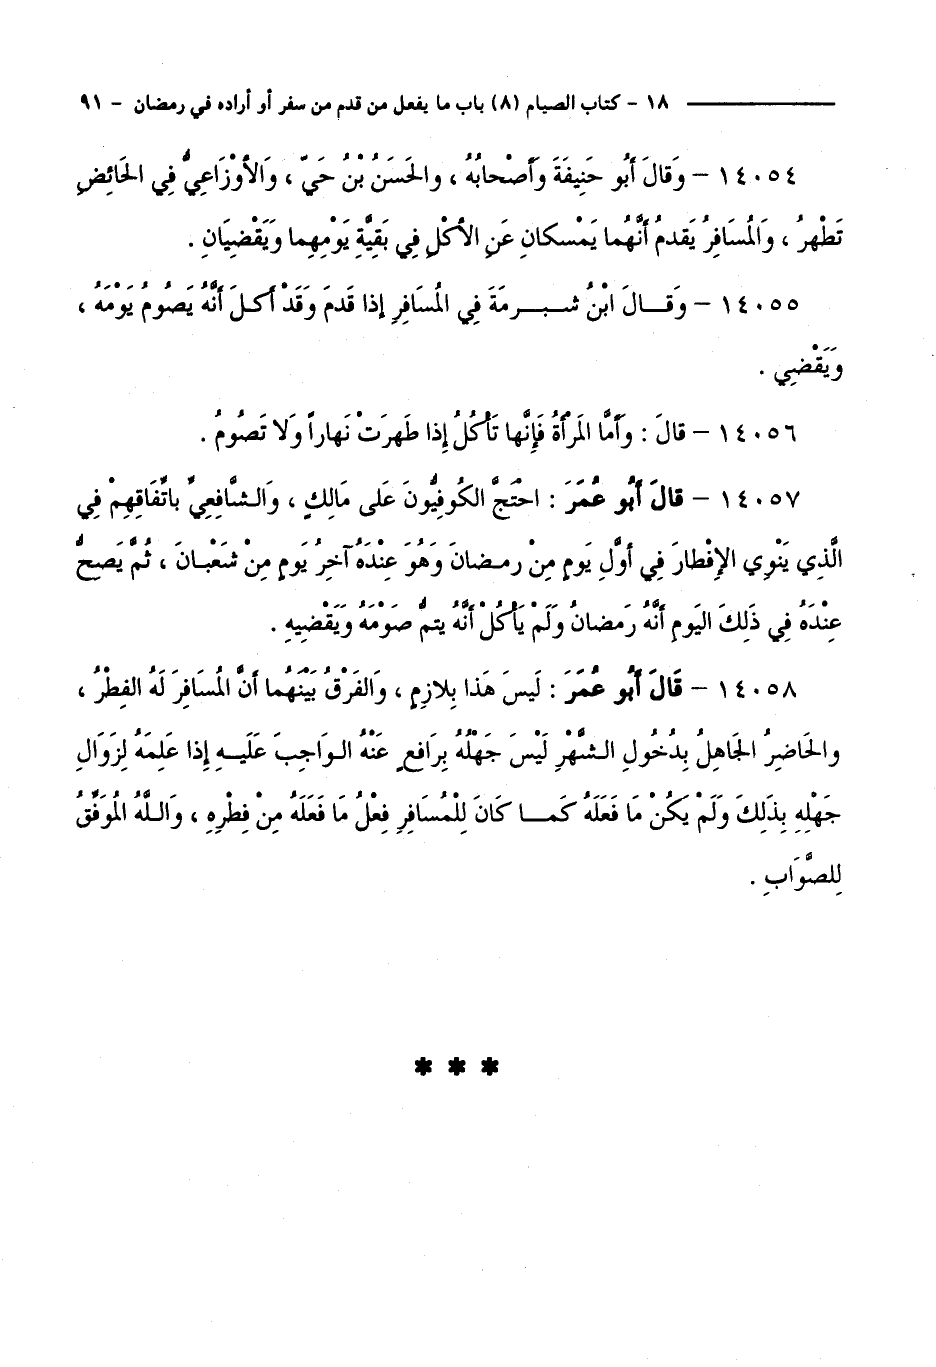 ١٨ - كتاب الصيام (٨) باب ما يفعل من قدم من سفر أو أراده في رمضان - ٩١
١٤٠٥٤ - وَقالَ أَبُو حَنِيفَةَ وَأَصْحابُهُ ، والحَسَنُ بْنُ حَيّ ، وَالأَوْزَاعِيُّ فِي الحَائِضِ
تَطْهرُ ، وَالُمسَافِرُ يَقدمُ أَنَّهُما يَمْسكانِ عَنِ الأكْلِ فِي بَقِيَّةِ يَوْمِهِما وَيَقْضِيَانِ .
١٤٠٥٥ - وَقـالَ ابْنُ شـبـرمَةَ فِي الُمسَافِرِ إذا قدمَ وَقَدْ أكـلَ أَنَّهُ يَصُومُ يَوْمَهُ ،
وَيَقْضِي .
١٤٠٥٦ - قالَ : وَأَمَّا المَرْأةُ فَإِنَّها تَأْكُلُ إِذا طَهرَتْ نَهاراً وَلا تَصُومُ .
١٤٠٥٧ - قالَ أَبُو عُمَرَ : احْتَجَّ الكُوفِيُّونَ عَلى مَالِكٍ ، وَالشَّافِعِيِّ باتِّفَاقِهِمْ فِي
الَّذِي يَنْوِي الإِفْطارَ فِي أَوَّلِ يَومٍ مِنْ رمـضانَ وَهُوَ عِنْدَهُ آخِرُ يَومٍ مِنْ شَعْبـانَ ، ثُمَّ يَصحُّ
عِنْدَهُ فِي ذَلِكَ اليَومِ أَنَّهُ رَمَضانُ وَلَمْ يَأْكُلْ أَنَّهُ يتمُّ صَوْمَهُ وَيَقْضِيهِ .
١٤٠٥٨ - قَالَ أَبُو عُمَرَ : لَيسَ هَذا بِلازِمٍ ، وَالفَرْقُ بَيْنَهُما أَنَّ الُمسَافِرَ لَهُ الفِطْرُ ،
والحَاضِرُ الجَاهِلُ بِدُخُولِ الشَّهْرِ لَيْسَ جَهْلُهُ بِرَافعٍ عَنْهُ الـوَاجِبَ عَلَيـهِ إِذا عَلِمَهُ لِزَوَالِ
جَهْلِهِ بِذَلِكَ وَلَمْ يَكُنْ مَا فَعَلَهُ كَمـا كَانَ لِلْمُسَافِرِ فِعْلُ مَا فَعَلَهُ مِنْ فِطْرِهِ ، وَاللَّهُ الُموَفِّقُ
لِلصَّوَابِ .
* * *